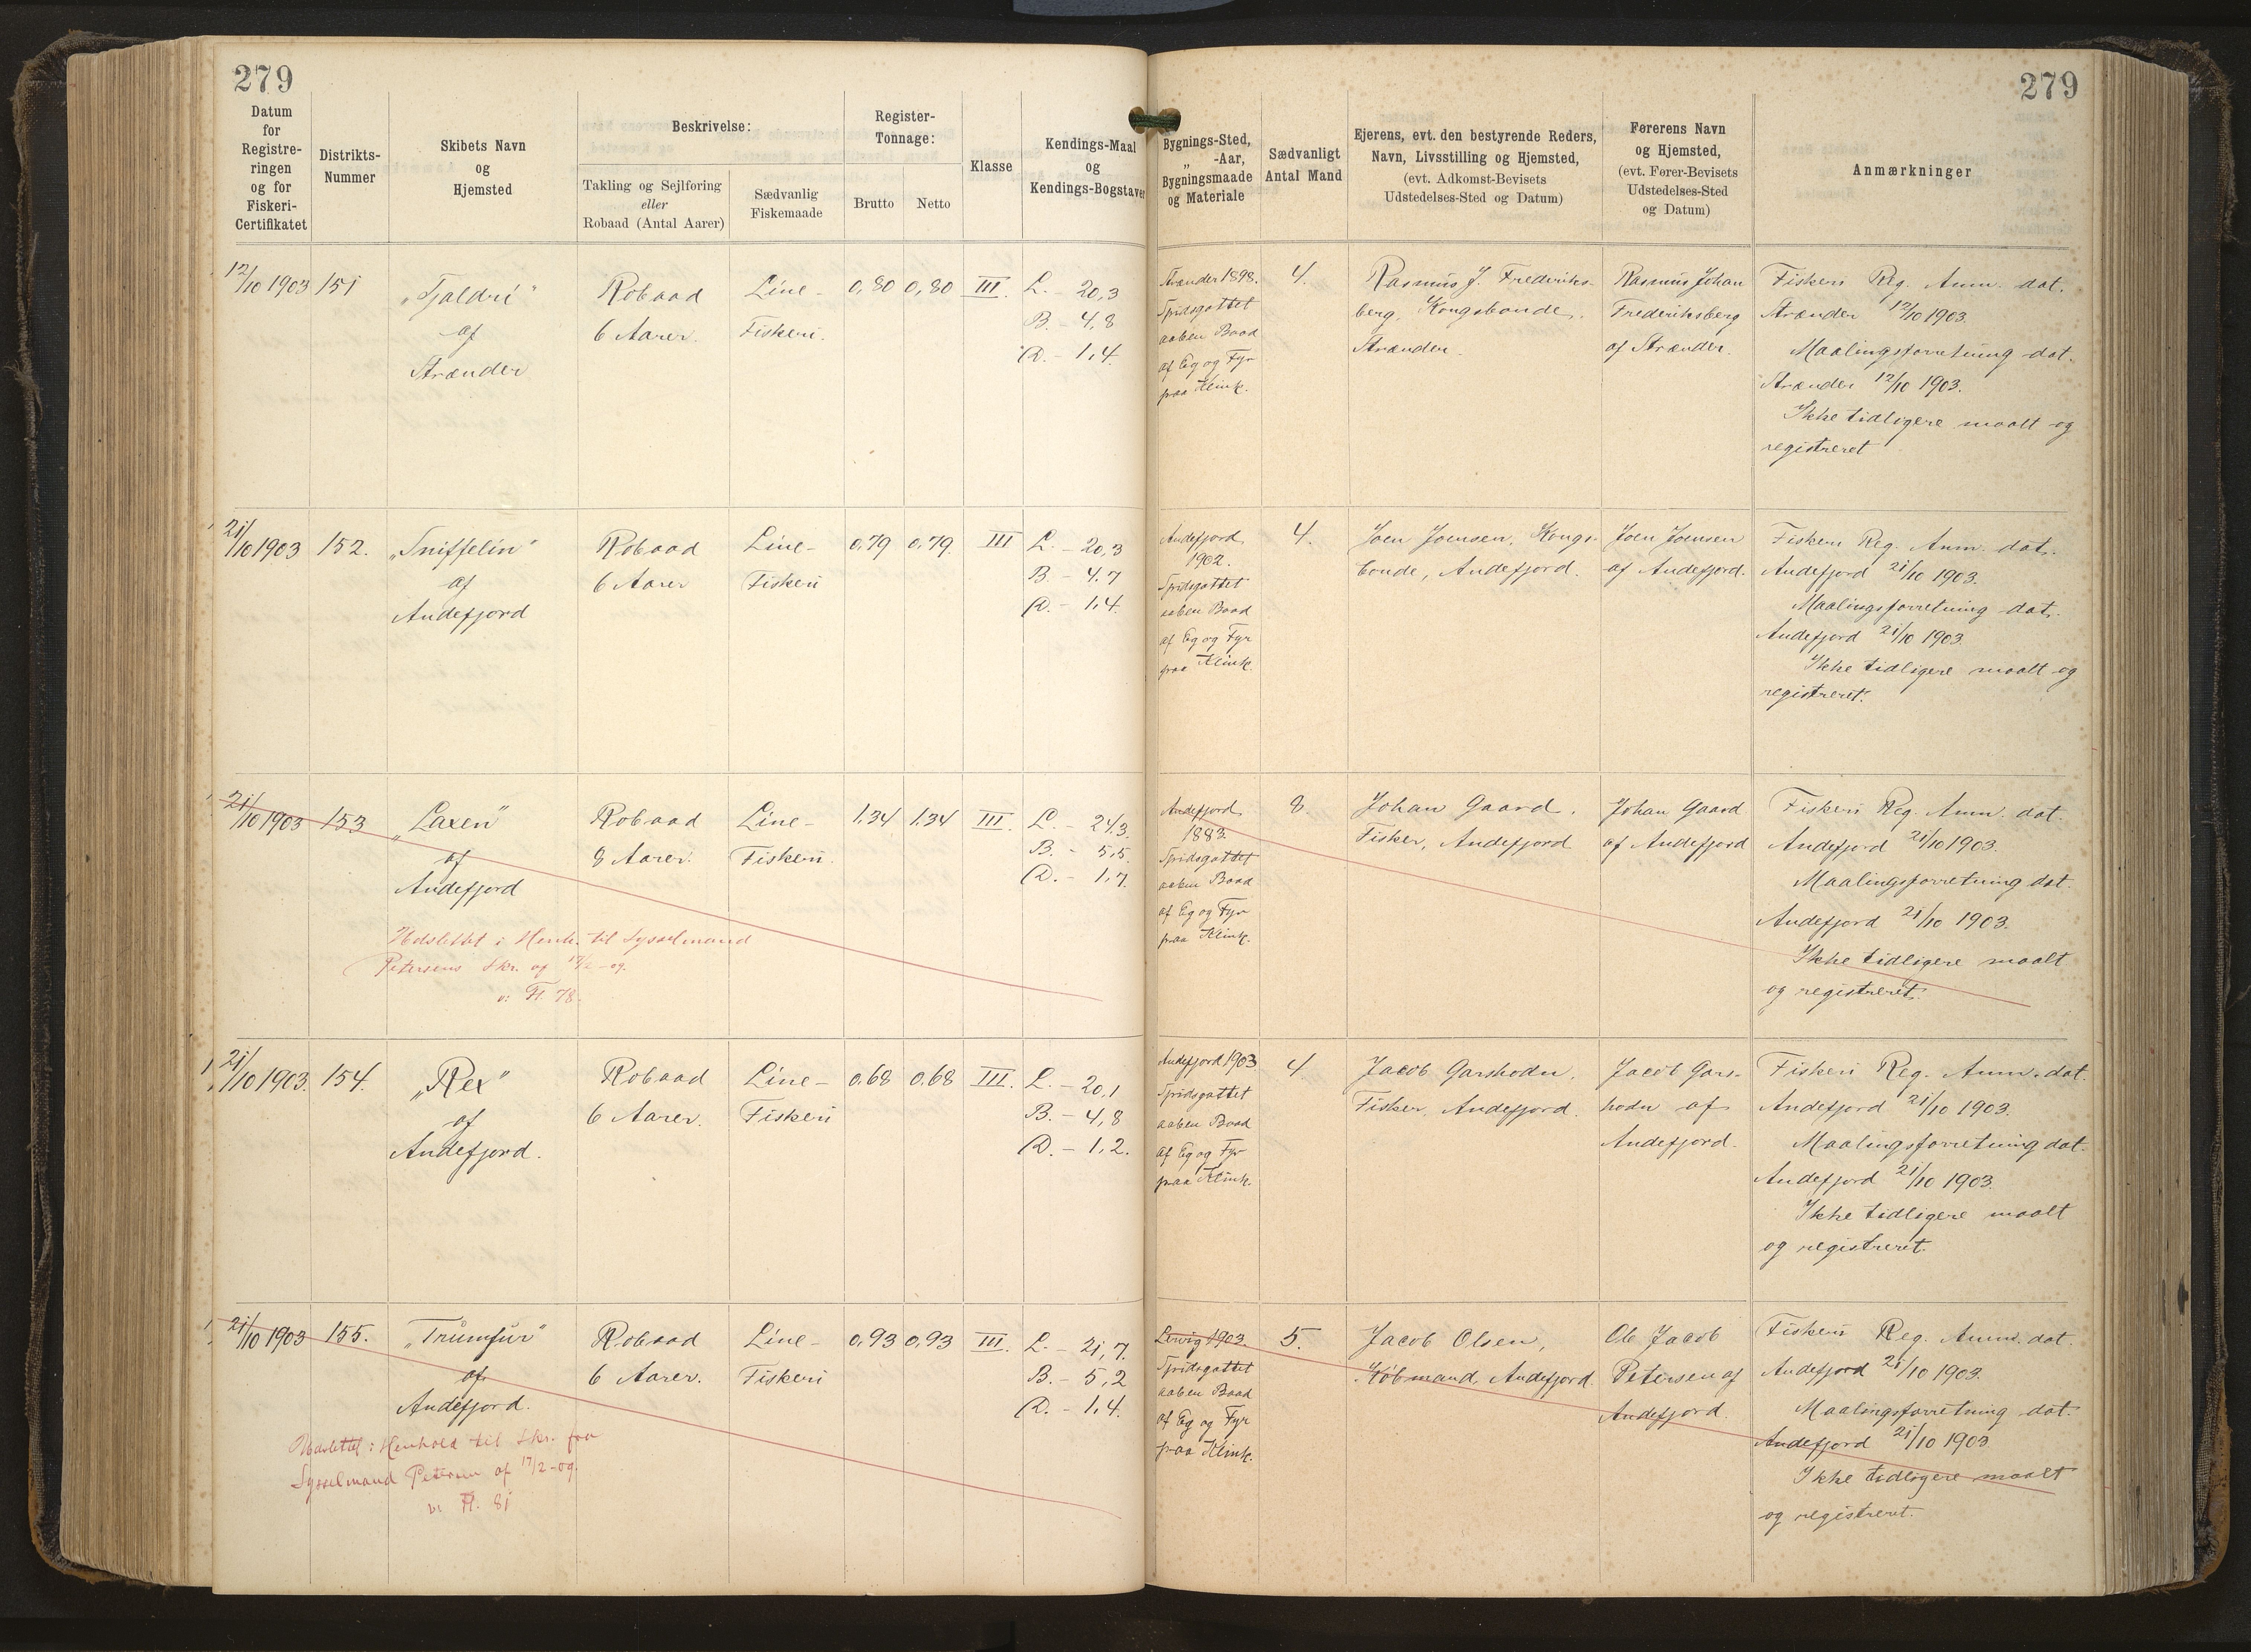 279
279
Datum
for
Registre-
ringen
og for
Fiskeri-
Certifikatet
Distrikts-
Nummer
Skibets Navn
og
Hjemsted
Beskrivelse:
Takling og Sejlføring
eller
Robaad (Antal Aarer)
Sædvanlig
Fiskemaade
Register-
Tonnage:
Brutto
Netto
Klasse
Kendings-Maal
og
Kendings-Bogstaver
Bygnings-Sted,
„ -Aar,
Bygningsmaade
og Materiale
Sædvanligt
Antal Mand
Ejerens, evt. den bestyrende Reders,
Navn, Livsstilling og Hjemsted,
(evt. Adkomst-Bevisets
Udstedelses-Sted og Datum)
Førerens Navn
og Hjemsted,
(evt. Fører-Bevisets
Udstedelses-Sted
og Datum)
Anmærkninger
12/10 1903
151
„Tjaldri"
af
Strænder
Robaad
6 Aarer.
Line-
Fiskeri.
0,80
0,80
III.
L. - 20,3
B. - 4,8
D. - 1,4
Strænder 1898.
Spidsgattet
aaben Baad
af Eg og Fyr
paa Klink.
4.
Rasmus J. Frederiks-
berg, Kongsbonde,
Strænder.
Rasmus Johan
Frederiksberg
af Strænder.
Fiskeri Reg. Anm. dat.
Strænder 12/10 1903.
Maalingsforretning dat.
Strænder 12/10 1903.
Ikke tidligere maalt og
registreret
21/10 1903
152.
„Sniffelin"
af
Andefjord
Robaad
6 Aarer
Line-
Fiskeri
0,79
0,79
III
L. - 20,3
B. - 4,7
D. - 1,4
Andefjord
1902.
Spidsgattet
aaben Baad
af Eg og Fyr
paa Klink.
4.
Joen Joensen, Kongs-
bonde, Andefjord.
Joen Joensen
af Andefjord.
Fiskeri Reg. Anm. dat.
Andefjord 21/10 1903.
Maalingsforretning dat.
Andefjord 21/10 1903.
Ikke tidligere maalt og
registreret.
21/10 1903
153
„Laxen"
af
Andefjord
Robaad
8 Aarer.
Line-
Fiskeri.
1,34
1,34
III.
L. - 24,3
B. - 5,5
D. - 1,7
Udslettet i Henh. til Sysselmand
Petersens Skr. af 17/2-09.
v. Fl. 78.
Andefjord
1883.
Spidsgattet
aaben Baad
af Eg og Fyr
paa Klink.
8.
Johan Gaard,
Fisker, Andefjord.
Johan Gaard
af Andefjord
Fiskeri Reg. Anm. dat.
Andefjord 21/10 1903.
Maalingsforretning dat.
Andefjord 21/10 1903.
Ikke tidligere maalt
og registreret.
21/10 1903.
154.
„Rex"
af
Andefjord.
Robaad
6 Aarer.
Line-
Fiskeri
0,68
0,68
III.
L. - 20,1
B. - 4,8
D. - 1,2.
Andefjord 1903
Spidsgattet
aaben Baad
af Eg og Fyr
paa Klink.
4.
Jacob Garshodn,
Fisker, Andefjord.
Jacob Gars-
hodn af
Andefjord.
Fiskeri Reg. Anm. dat.
Andefjord 21/10 1903.
Maalingsforretning dat.
Andefjord 21/10 1903.
Ikke tidligere maalt
og registreret.
21/10 1903
155.
„Trumfur"
af
Andefjord.
Robaad
6 Aarer.
Line-
Fiskeri
0,93
0,93
III.
L. - 21,7.
B. - 5,2
D. - 1,4.
Udslettet i Henhold til Skr. fra
Sysselmand Petersen af 17/2-09.
v. Fl. 81
Lervig 1903.
Spidsgattet
aaben Baad
af Eg og Fyr
paa Klink.
5.
Jacob Olsen,
Købmand, Andefjord.
Ole Jacob
Petersen af
Andefjord.
Fiskeri Reg. Anm. dat.
Andefjord 21/10 1903.
Maalingsforretning dat.
Andefjord 21/10 1903
Ikke tidligere maalt
og registreret.